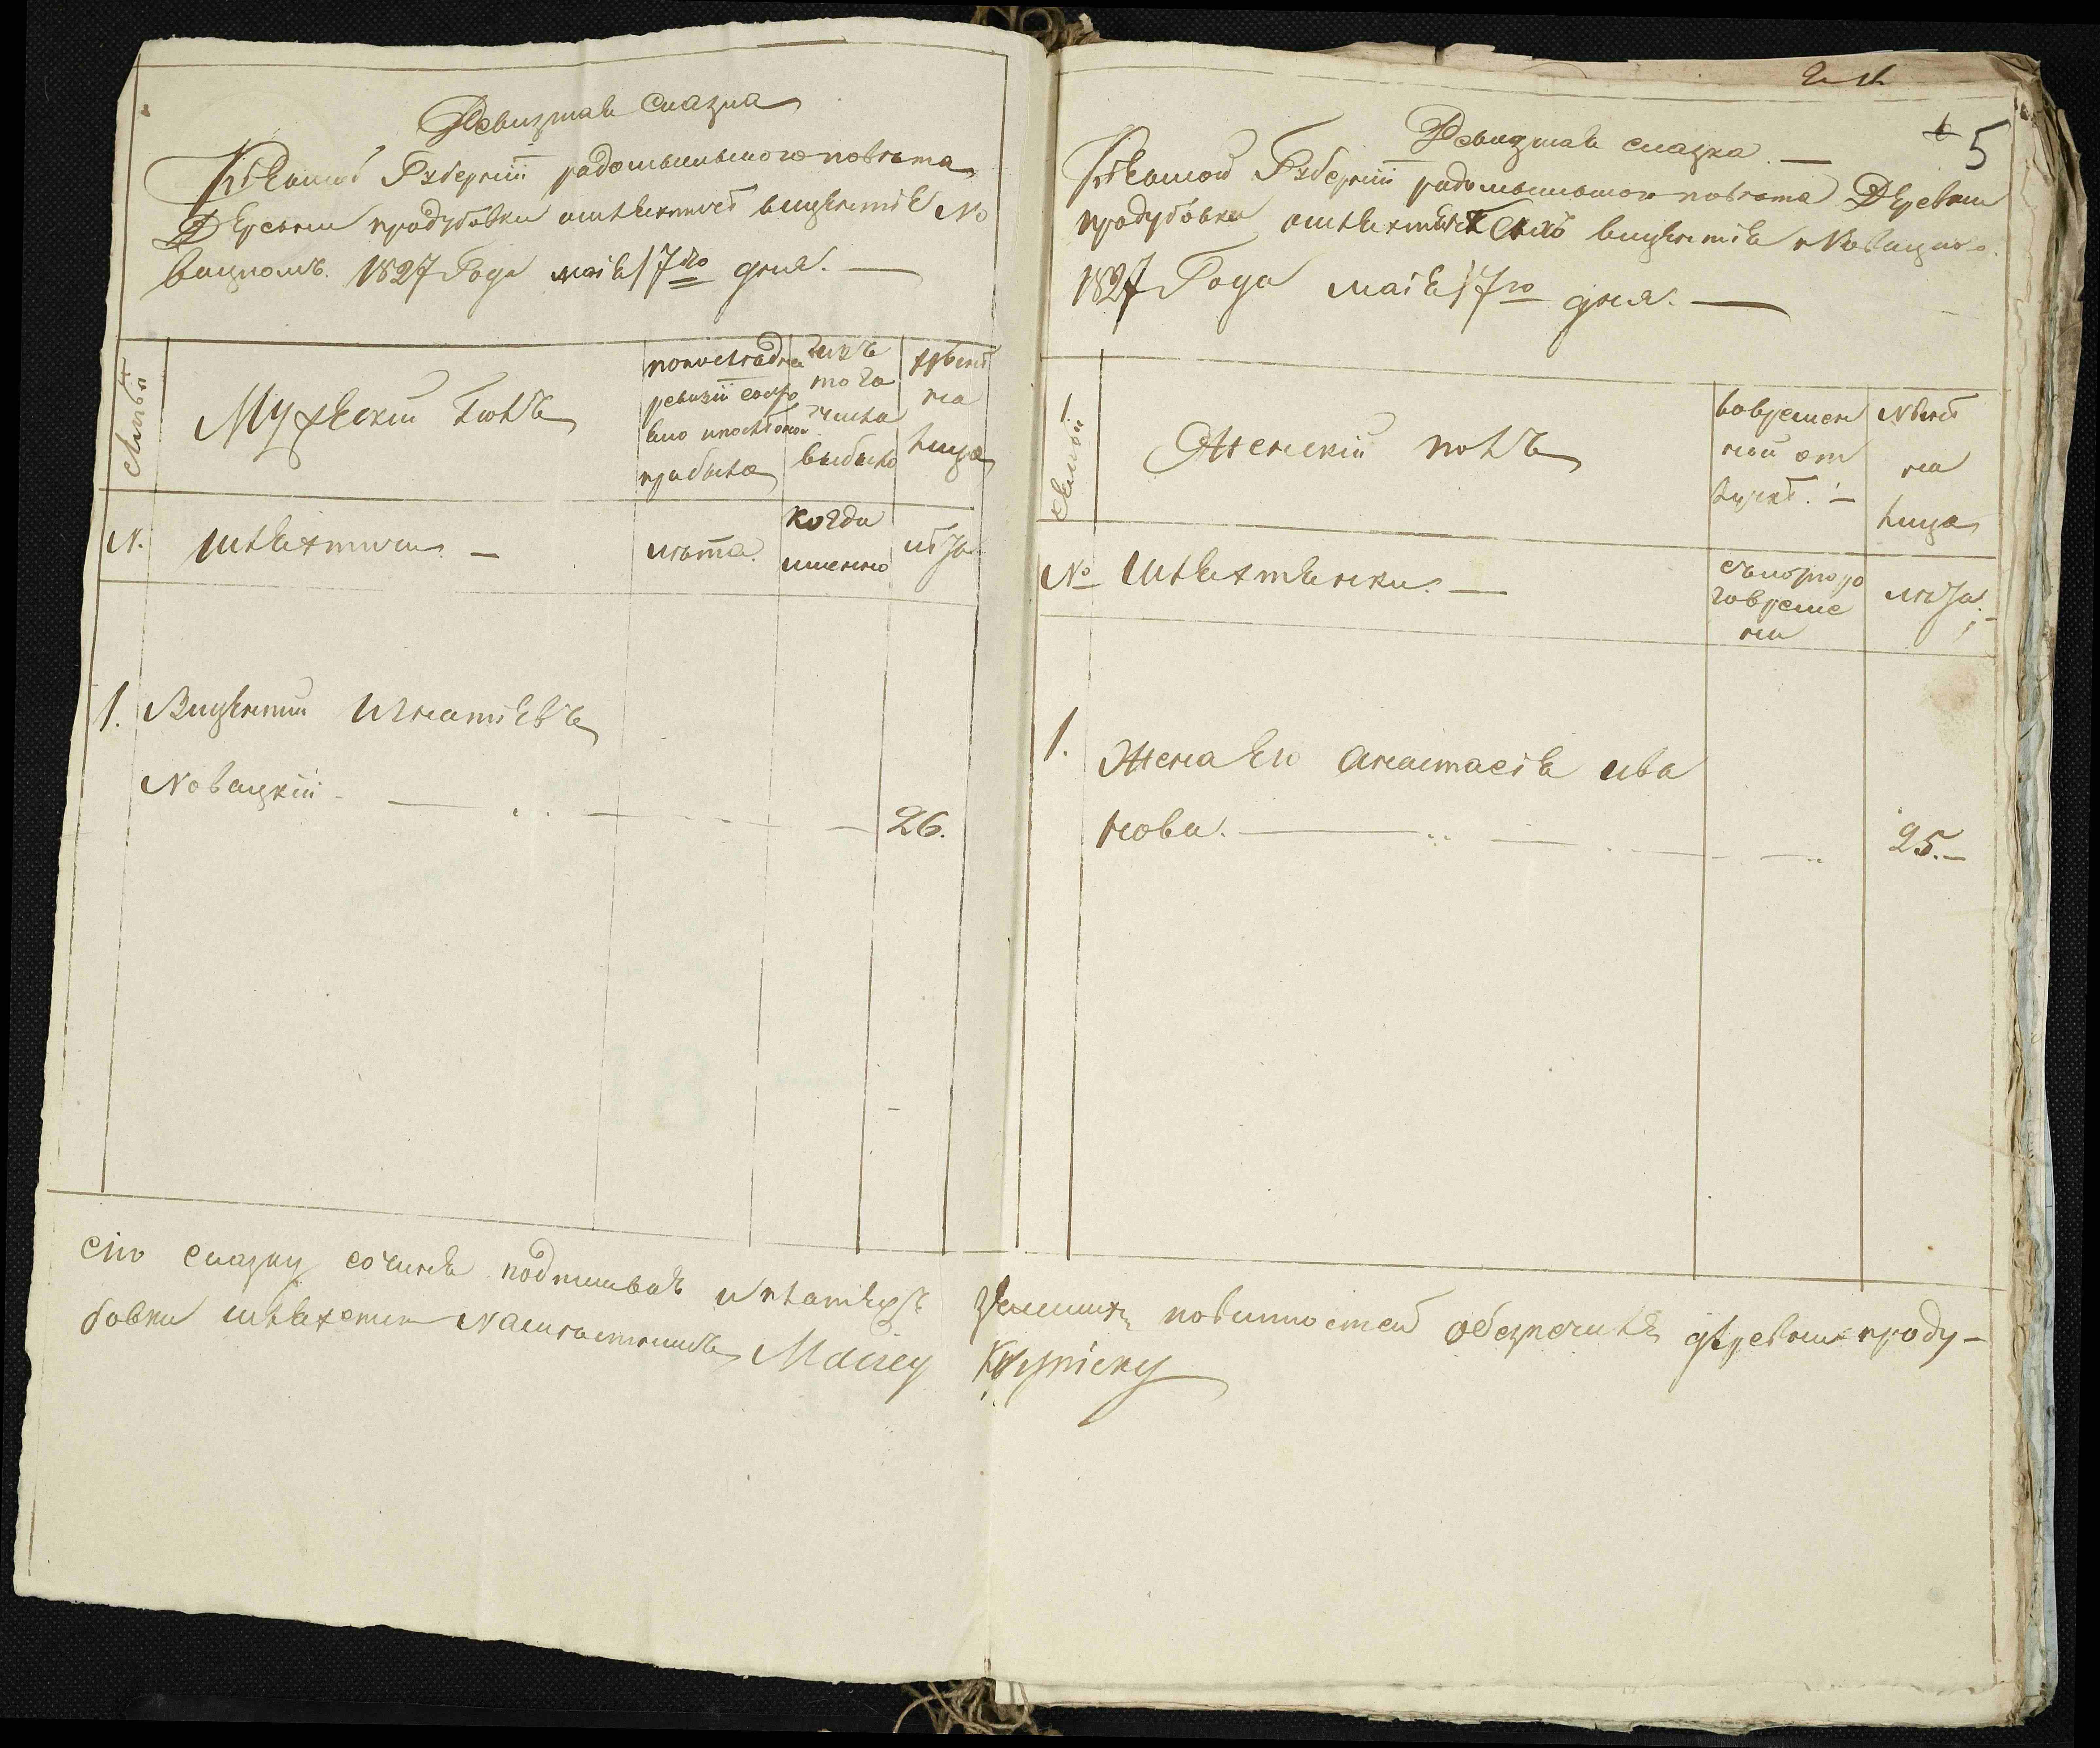 Ревизская Сказка
Кіевской Губерніи радомысльского повѣта
Деревни продубовки шляхтича вицентія Но
вацкого. 1827 Года маія 17го дня. —
Семьи
Мужескій полъ
ревизіи
прибыло
изъ
того
числа
выбыло
нынѣ
на
лицо
N. шляхтичи —
лѣта.
когда
именно
лѣта
1. Вицентій Игнатіевъ
Новацкій — 26.
5
Ревизская сказка —
Кіевской Губерніи радомысльского повѣта Деревни
продубовки вицентія Новацкого.
1827 Года маія 17го дня. —
Семьи
Женскій полъ
вовремен
ной от
лучкѣ. —
Нынѣ
на
лицо
№ шляхтянки. —
съкоторого
времє
ни
лѣта.
1. Жена Его Анастасія ива
нова. — 25. —
Сію сказку сочинялъ подписывалъ и платежъ земскихъ повинностей обезпечилъ деревни проду-
бовки шляхтичь Maciey